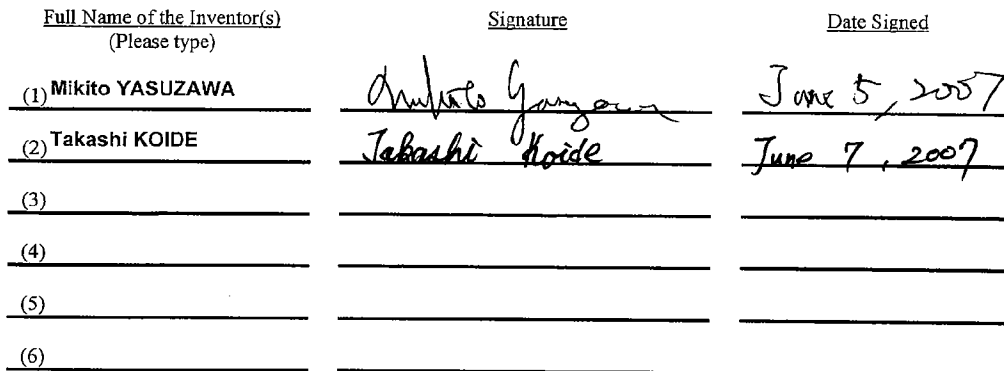 Full Name of the Inventor(s) Signature Date Signed
(Please type)
(1) Mikito YASUZAWA June 5, 2007
(2) Takashi KOIDE Takashi Koide June 7, 2007
(3)
(4)
(5)
(6)